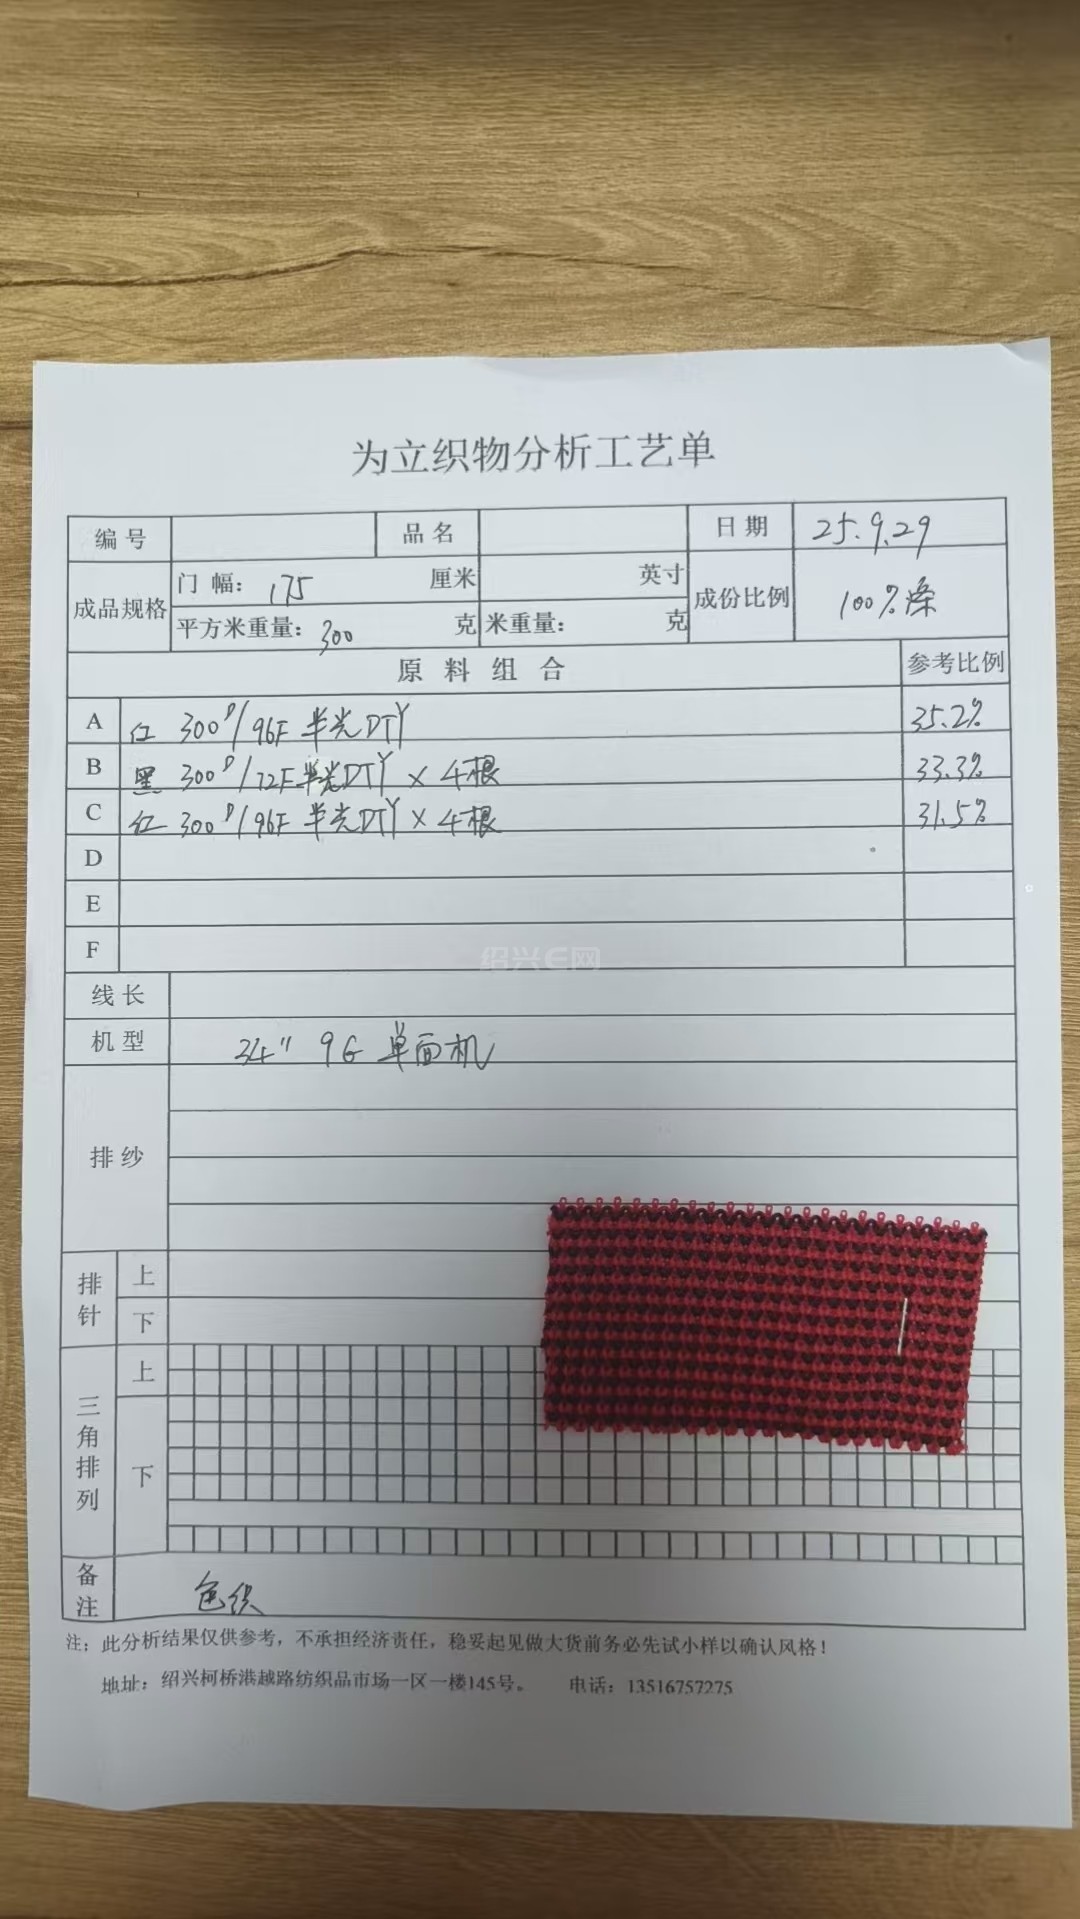 为立织物分析工艺单
编号 品名 日期 25.9.29
成品规格 门幅：175 厘米 英寸 成份比例 100%涤
平方米重量：300 克 米重量： 克
原料组合 参考比例
A 红 300D/96F 半光DTY 35.2%
B 黑 300D/72F半光DTY × 4根 33.3%
C 红 300D/96F 半光DTY × 4根 31.5%
D
E
F
绍兴E网
线长
机型 34" 9G 单面机
排纱
排针 上
下
三角排列 上
下
备注 色织
注：此分析结果仅供参考，不承担经济责任，稳妥起见做大货前务必先试小样以确认风格！
地址：绍兴柯桥港越路纺织品市场一区一楼145号。 电话：13516757275